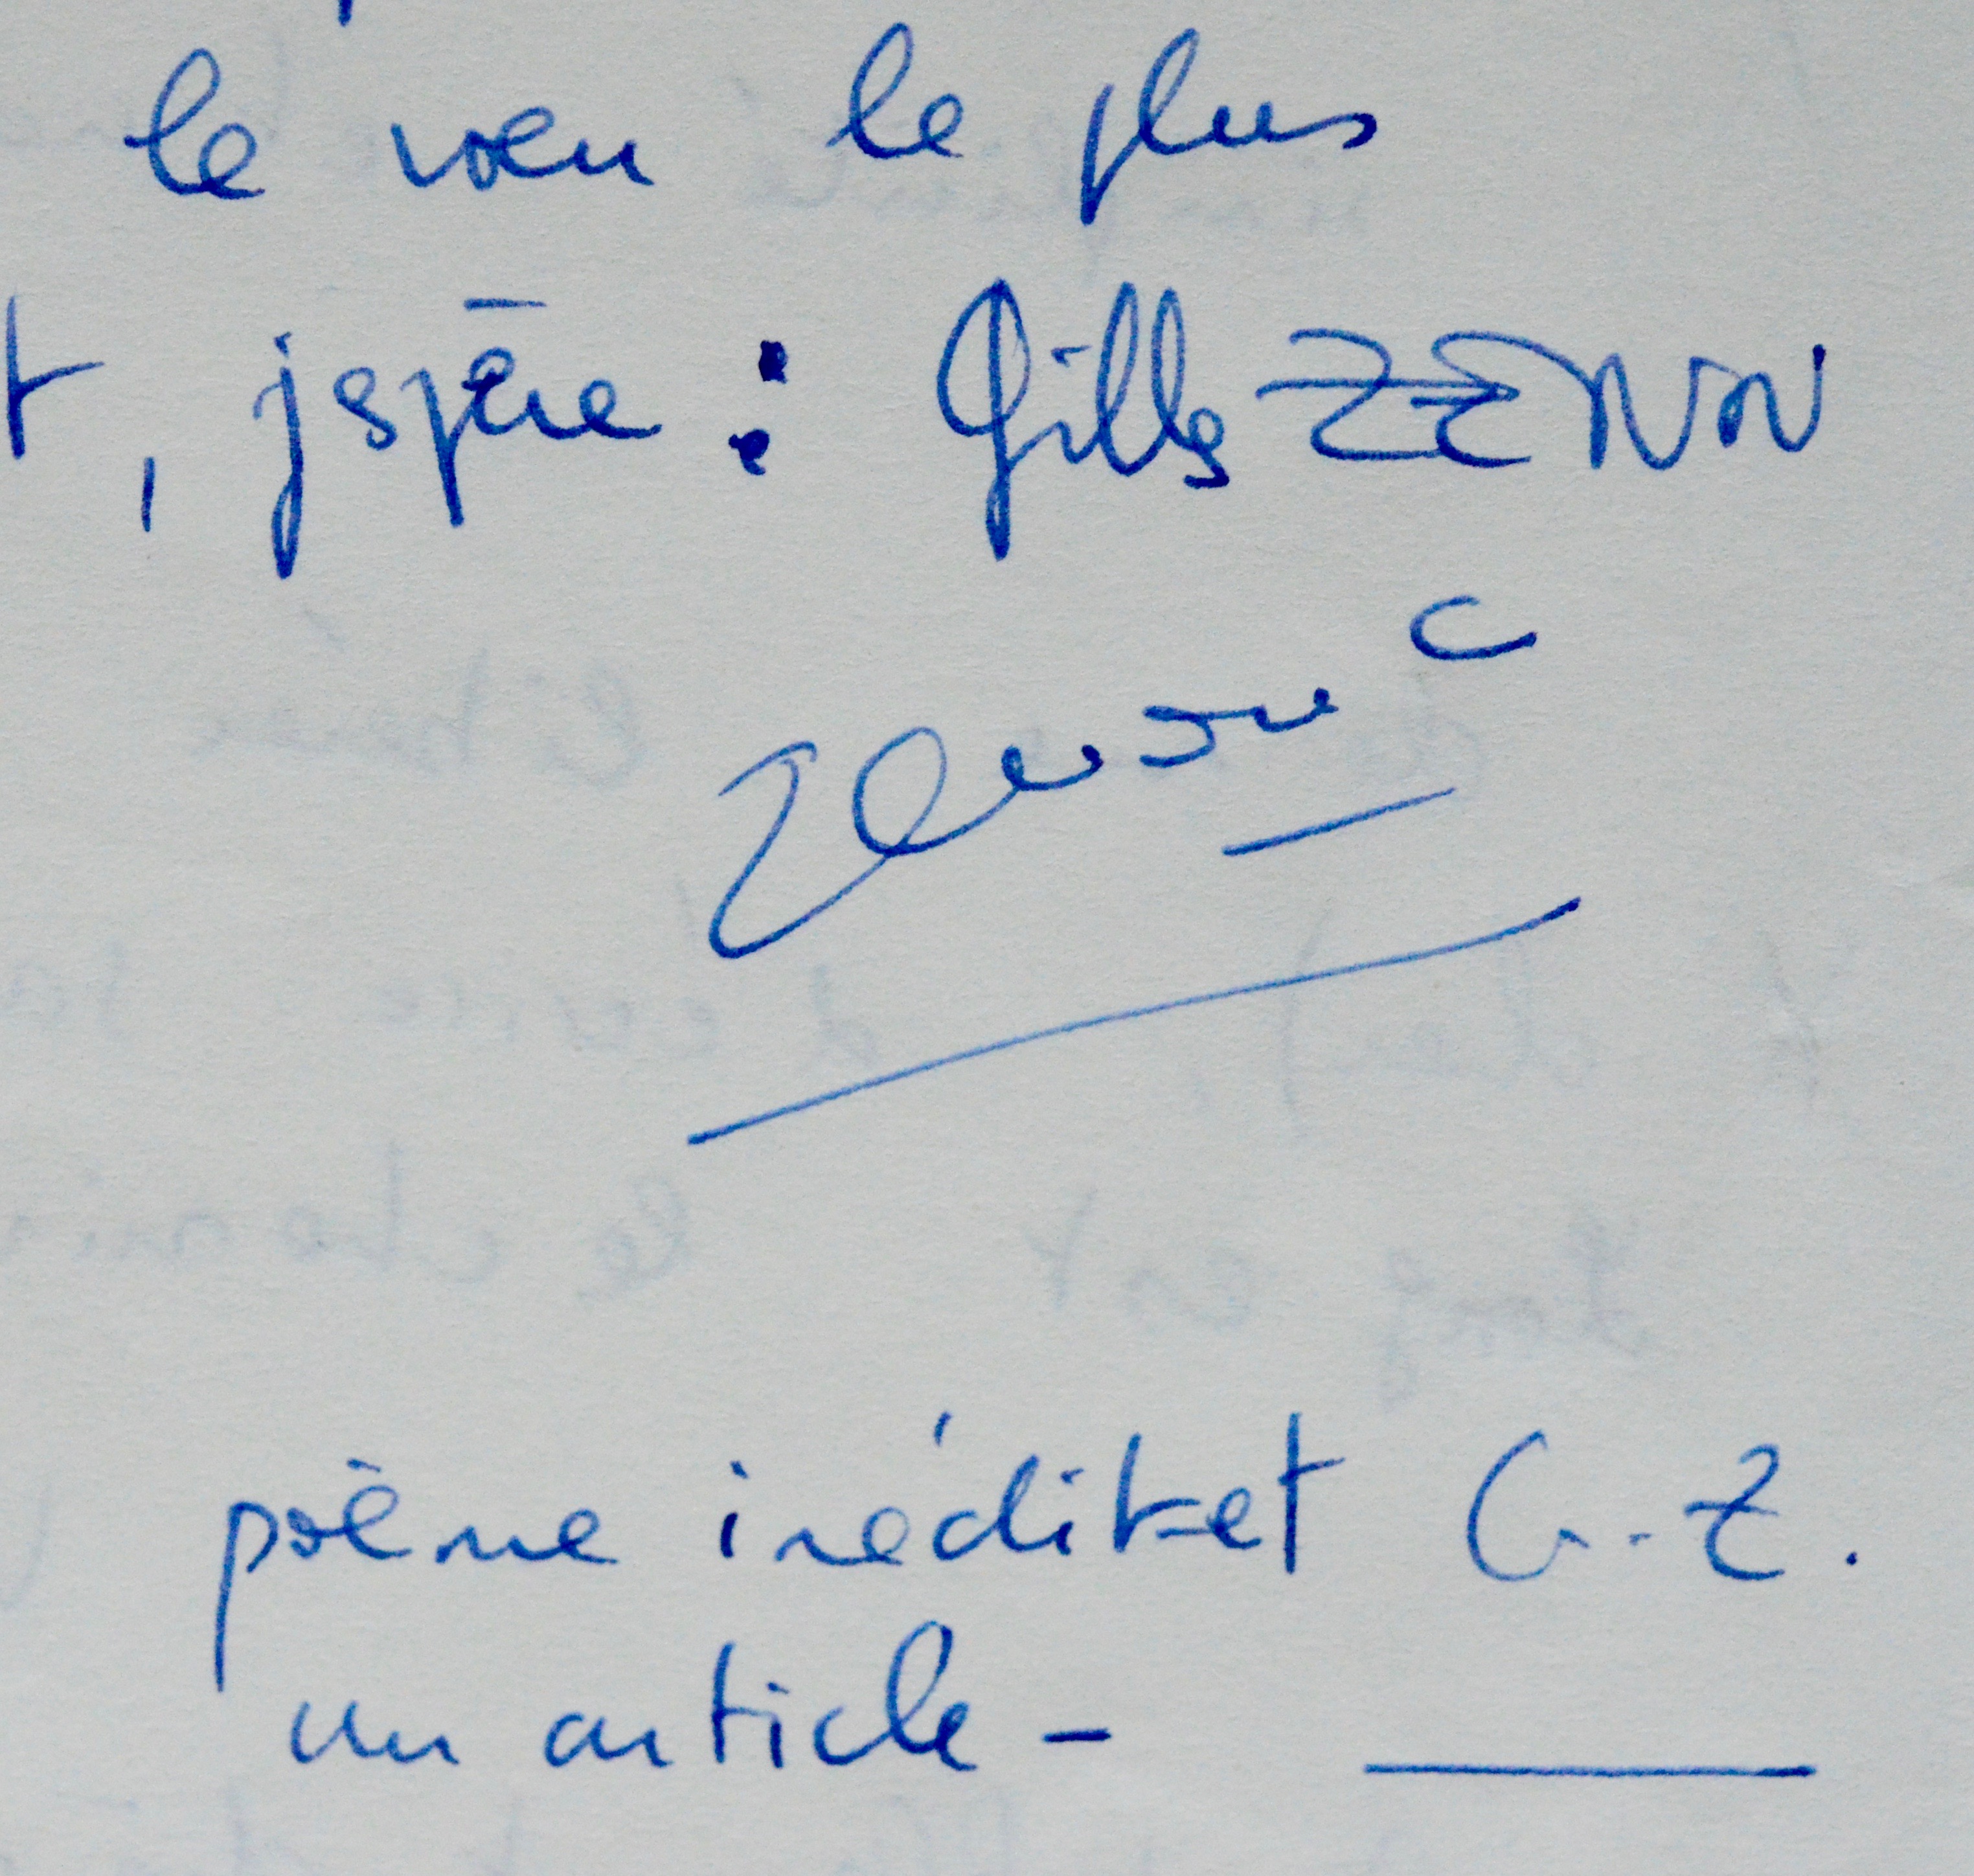 le vœu le plus
t, jspère : Gilles ZENN
poème inédit et G. Z.
un article –